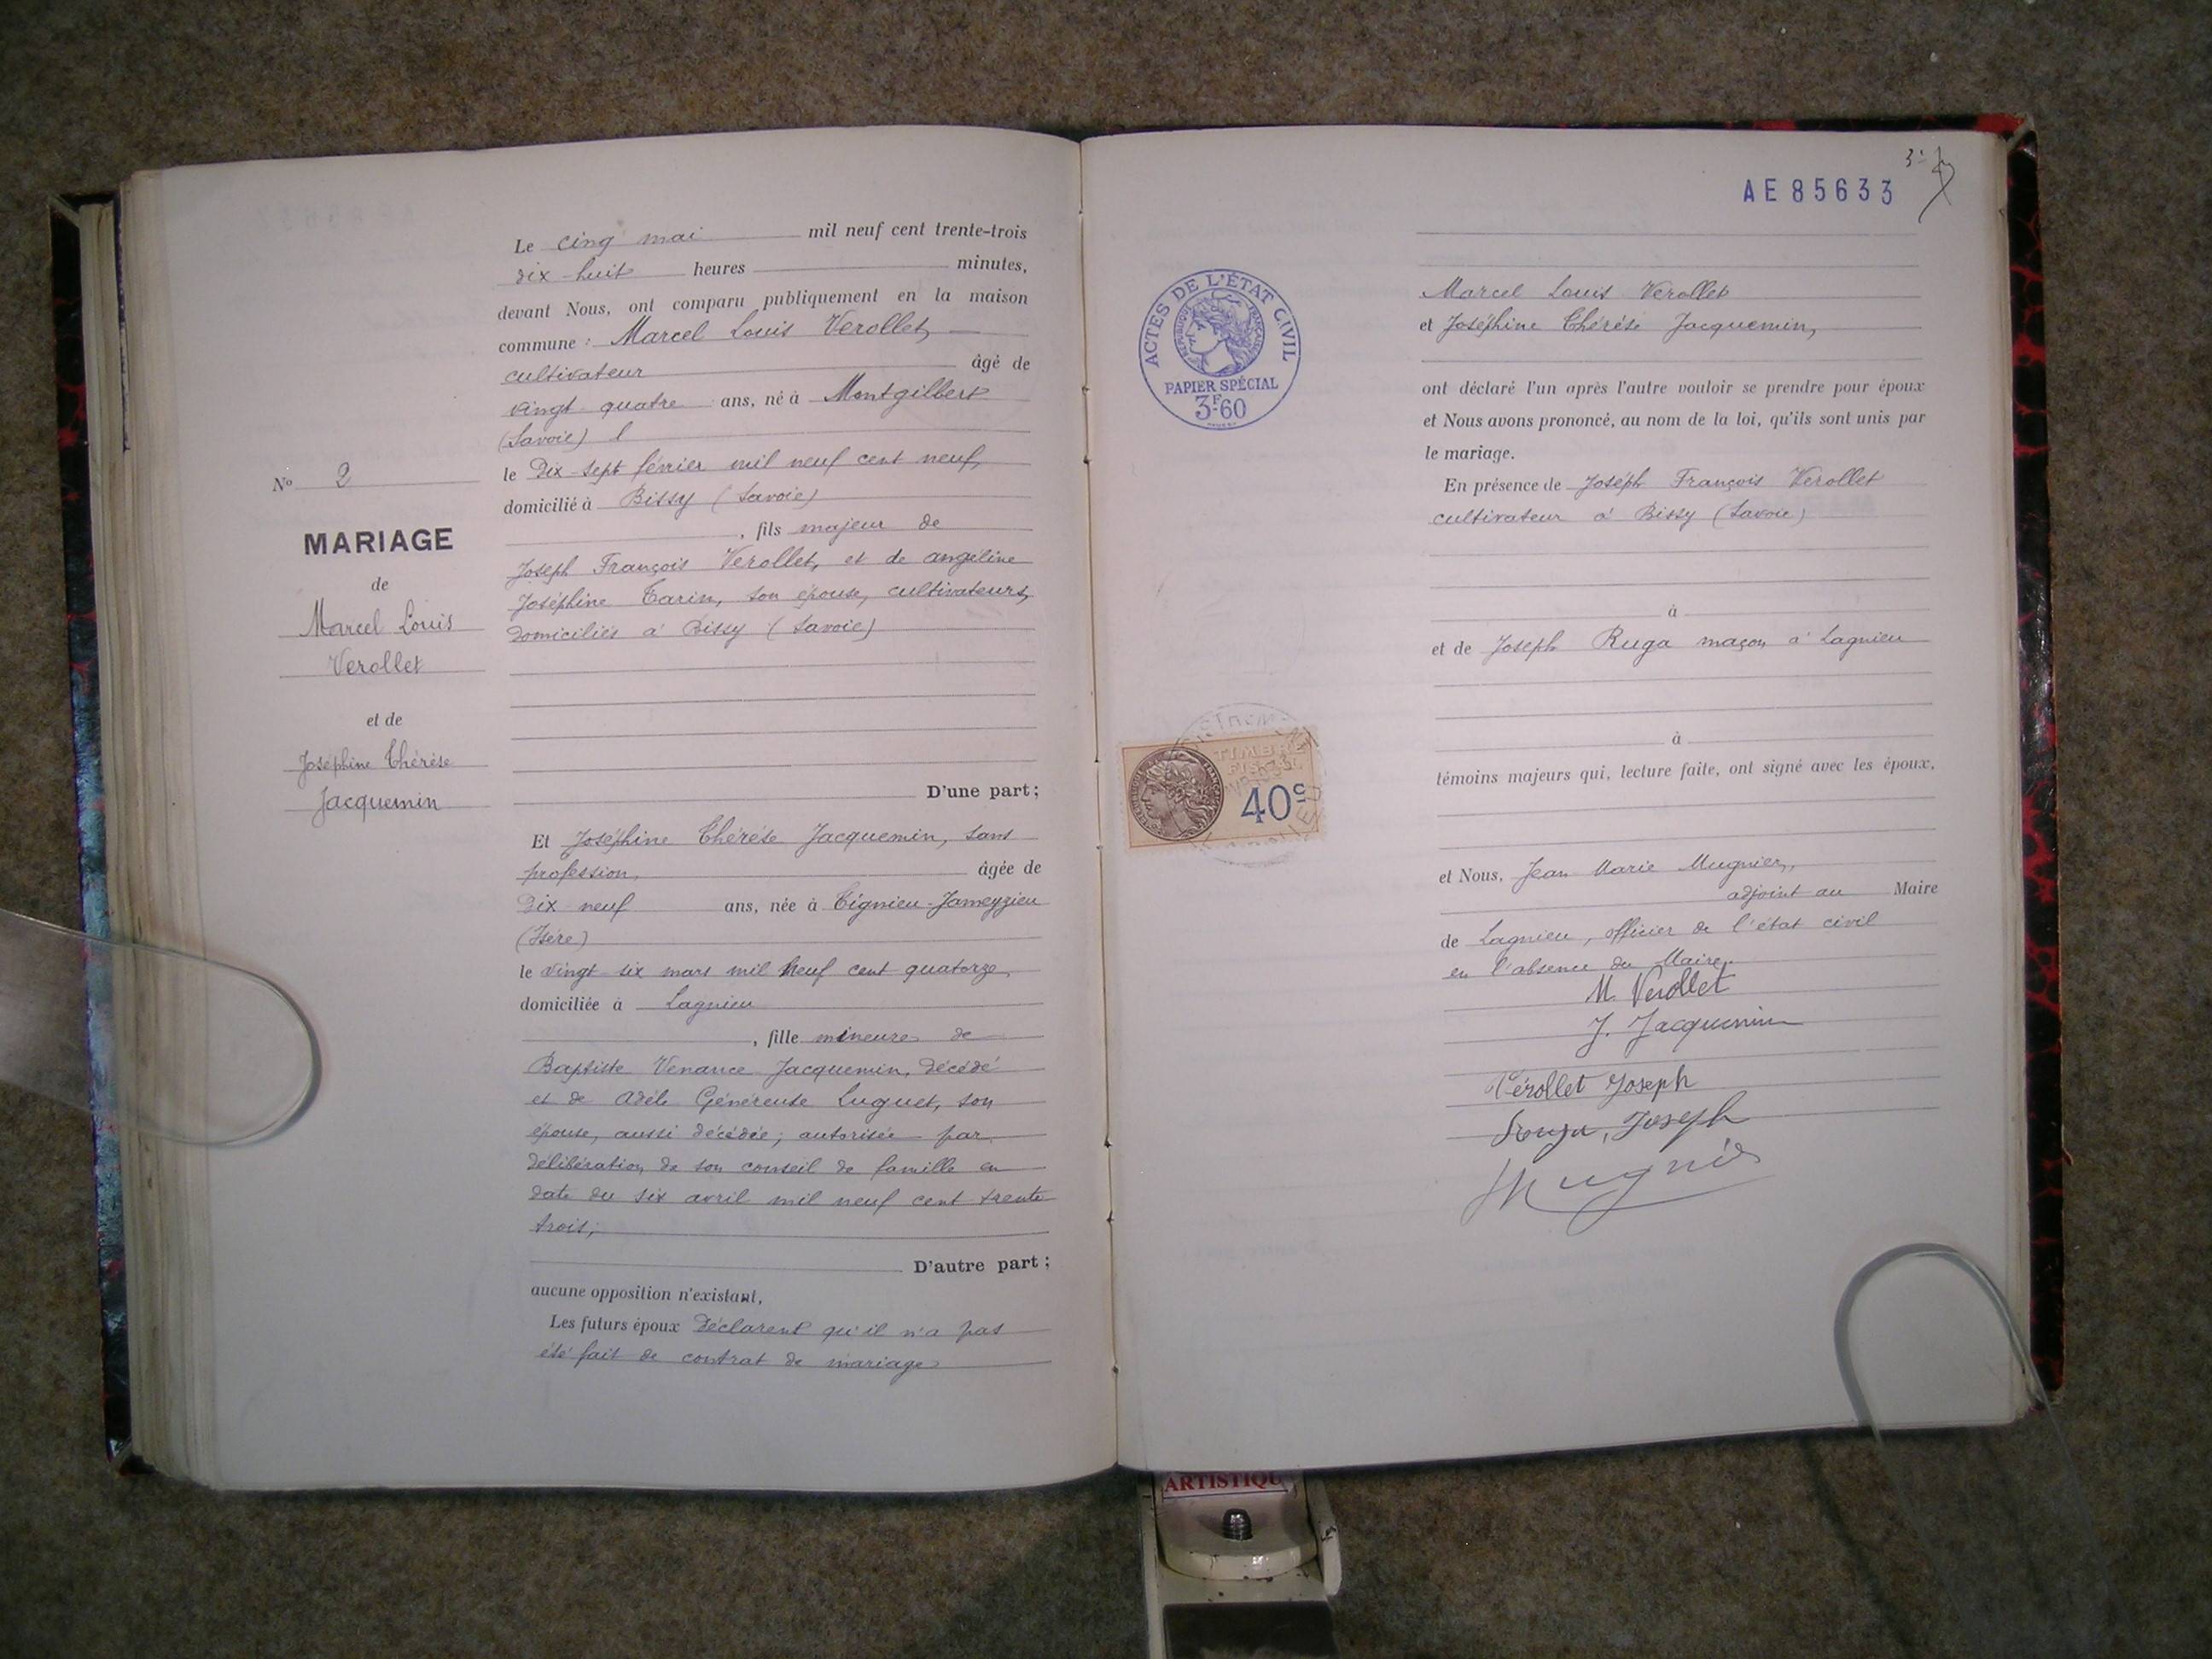 Le cinq mai mil neuf cent trente-trois
dix-huit heures minutes,
devant Nous, ont comparu publiquement en la maison
commune : Marcel Louis Verollet,
cultivateur âgé de
vingt-quatre ans, né à Montgilbert
(Savoie)
le dix-sept février mil neuf cent neuf,
domicilié à Bissy (Savoie)
, fils majeur de
Joseph François Verollet, et de angéline
Joséphine Tarin, son épouse, cultivateurs,
domiciliés à Bissy (Savoie)
D'une part ;
No 2
MARIAGE
de
Marcel Louis
Verollet
et de
Joséphine Thérèse
Jacquemin
Et Joséphine Thérèse Jacquemin, sans
profession, âgée de
dix neuf ans, née à Tignieu-Jameyzieu
(Isère)
le vingt six mars mil neuf cent quatorze,
domiciliée à Lagnieu
, fille mineure de
Baptiste Venance Jacquemin, décédé
et de Adèle Généreuse Luguet, son
épouse, aussi décédée ; autorisée par
délibération de son conseil de famille en
date du six avril mil neuf cent trente
trois ;
D'autre part ;
aucune opposition n'existant,
Les futurs époux déclarent qu'il n'a pas
été fait de contrat de mariage
AE 85633
ACTES DE L'ÉTAT CIVIL
RÉPUBLIQUE FRANÇAISE
PAPIER SPÉCIAL
3F60
Marcel Louis Verollet
et Joséphine Thérèse Jacquemin,
ont déclaré l'un après l'autre vouloir se prendre pour époux
et Nous avons prononcé, au nom de la loi, qu'ils sont unis par
le mariage.
En présence de Joseph François Verollet
cultivateur à Bissy (Savoie)
à
et de Joseph Ruga maçon à Lagnieu
à
témoins majeurs qui, lecture faite, ont signé avec les époux,
TIMBRE
FISCAL
40c
et Nous, Jean Marie Mugnier,
adjoint au Maire
de Lagnieu, officier de l'état civil
en l'absence du Maire.
M. Verollet
J. Jacquemin
Vérollet Joseph
Joseph
Mugnier
ARTISTIQU